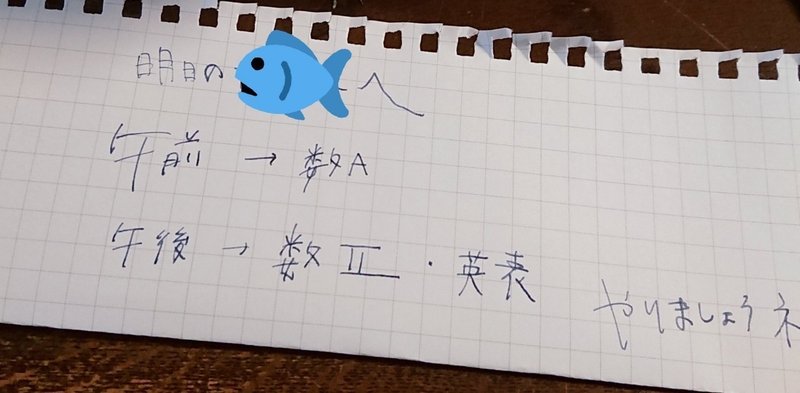 明日の へ
午前 → 数A
午後 → 数Ⅱ・英表
やりましょうネ